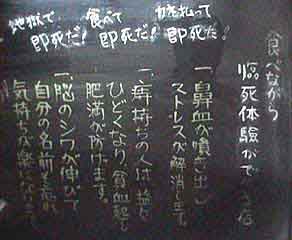 食べながら
臨死体験ができる店
一、鼻血が噴き出し
ストレスが解消します。
一、痔持ちの人は益々
ひどくなり、貧血起し
肥満が防げます。
一、脳のシワが伸びて
自分の名前を忘れ
気持ちが楽になります
地獄で
即死だ!
食べて
即死だ!
金を払って
即死だ!